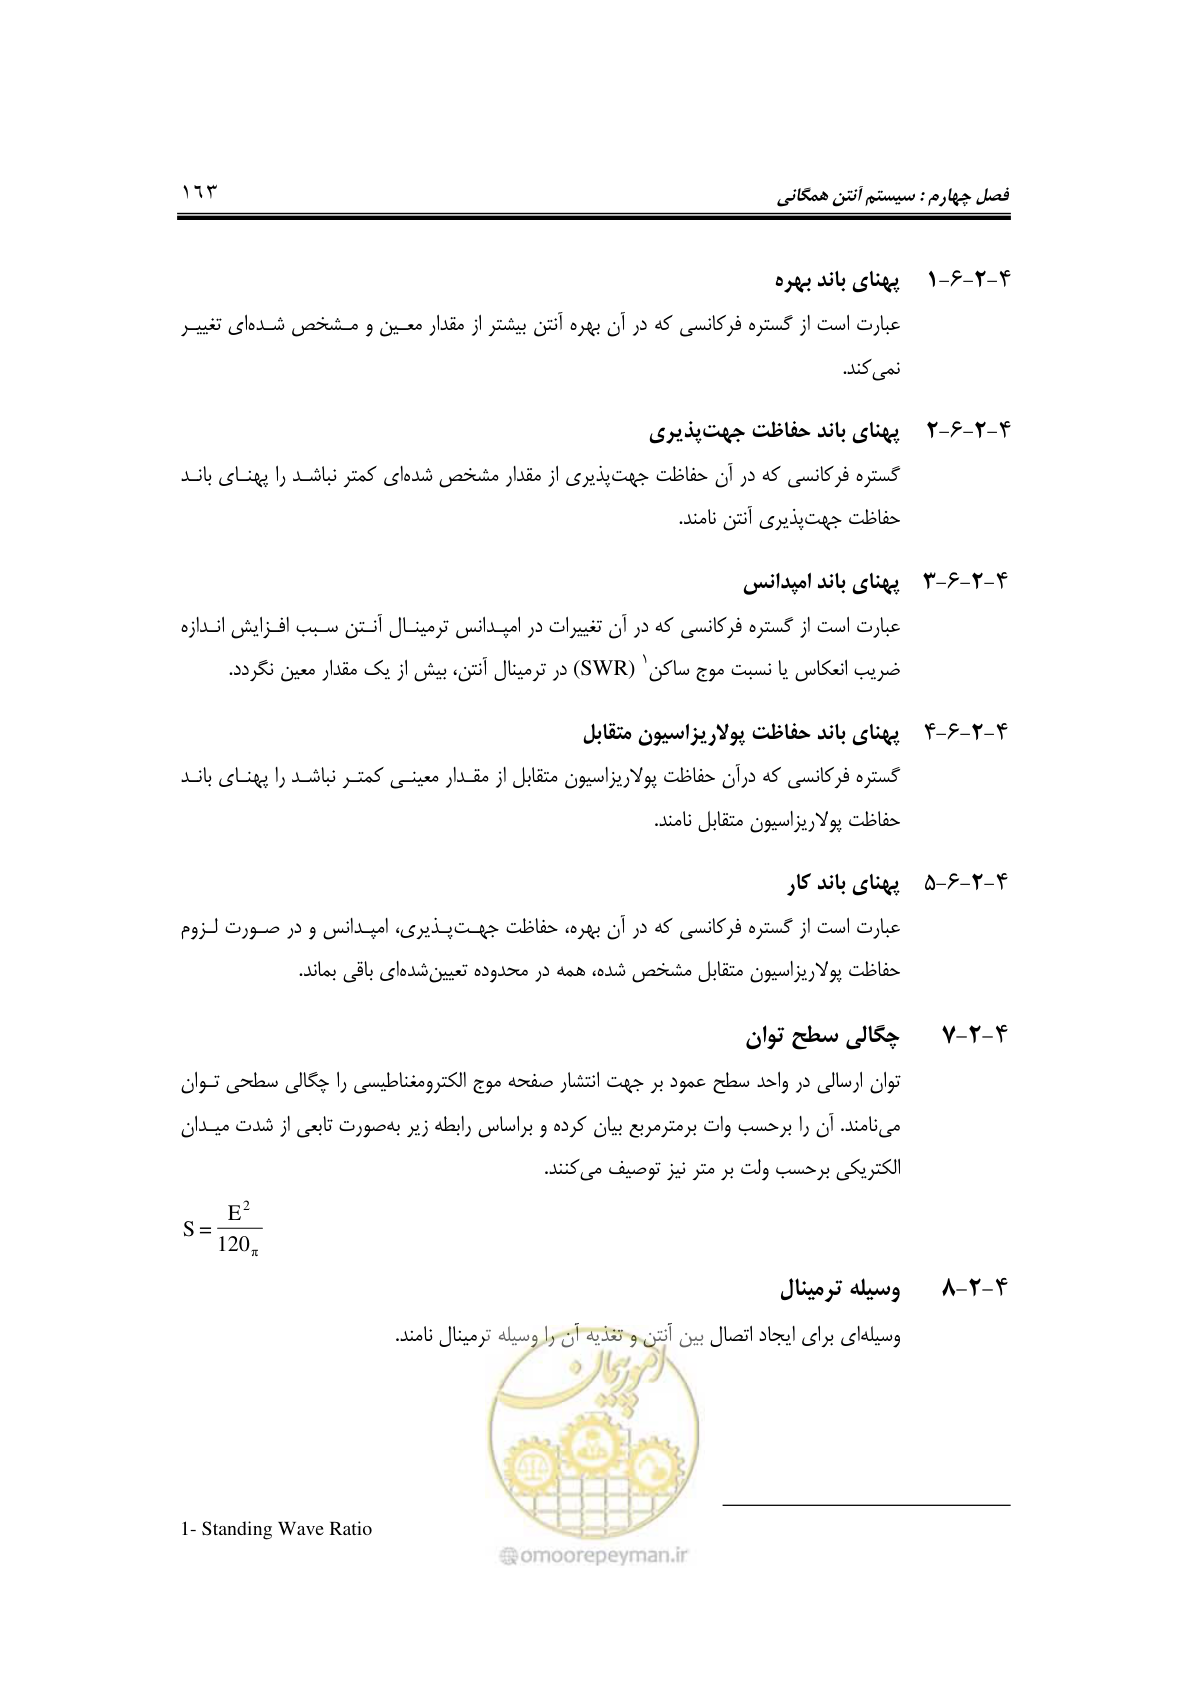 فصل چهارم : سیستم آنتن همگانی ۱۶۳
۴-۲-۶-۱ پهنای باند بهره
عبارت است از گستره فرکانسی که در آن بهره آنتن بیشتر از مقدار معین و مشخص شده‌ای تغییر
نمی‌کند.
۴-۲-۶-۲ پهنای باند حفاظت جهت‌پذیری
گستره فرکانسی که در آن حفاظت جهت‌پذیری از مقدار مشخص شده‌ای کمتر نباشد را پهنای باند
حفاظت جهت‌پذیری آنتن نامند.
۴-۲-۶-۳ پهنای باند امپدانس
عبارت است از گستره فرکانسی که در آن تغییرات در امپدانس ترمینال آنتن سبب افزایش اندازه
ضریب انعکاس یا نسبت موج ساکن۱ (SWR) در ترمینال آنتن، بیش از یک مقدار معین نگردد.
۴-۲-۶-۴ پهنای باند حفاظت پولاریزاسیون متقابل
گستره فرکانسی که درآن حفاظت پولاریزاسیون متقابل از مقدار معینی کمتر نباشد را پهنای باند
حفاظت پولاریزاسیون متقابل نامند.
۴-۲-۶-۵ پهنای باند کار
عبارت است از گستره فرکانسی که در آن بهره، حفاظت جهت‌پذیری، امپدانس و در صورت لزوم
حفاظت پولاریزاسیون متقابل مشخص شده، همه در محدوده تعیین‌شده‌ای باقی بماند.
۴-۲-۷ چگالی سطح توان
توان ارسالی در واحد سطح عمود بر جهت انتشار صفحه موج الکترومغناطیسی را چگالی سطحی توان
می‌نامند. آن را برحسب وات برمترمربع بیان کرده و براساس رابطه زیر به‌صورت تابعی از شدت میدان
الکتریکی برحسب ولت بر متر نیز توصیف می‌کنند.
S = E² / 120π
۴-۲-۸ وسیله ترمینال
وسیله‌ای برای ایجاد اتصال بین آنتن و تغذیه آن را وسیله ترمینال نامند.
امور پیمان
1- Standing Wave Ratio
@omoorepeyman.ir